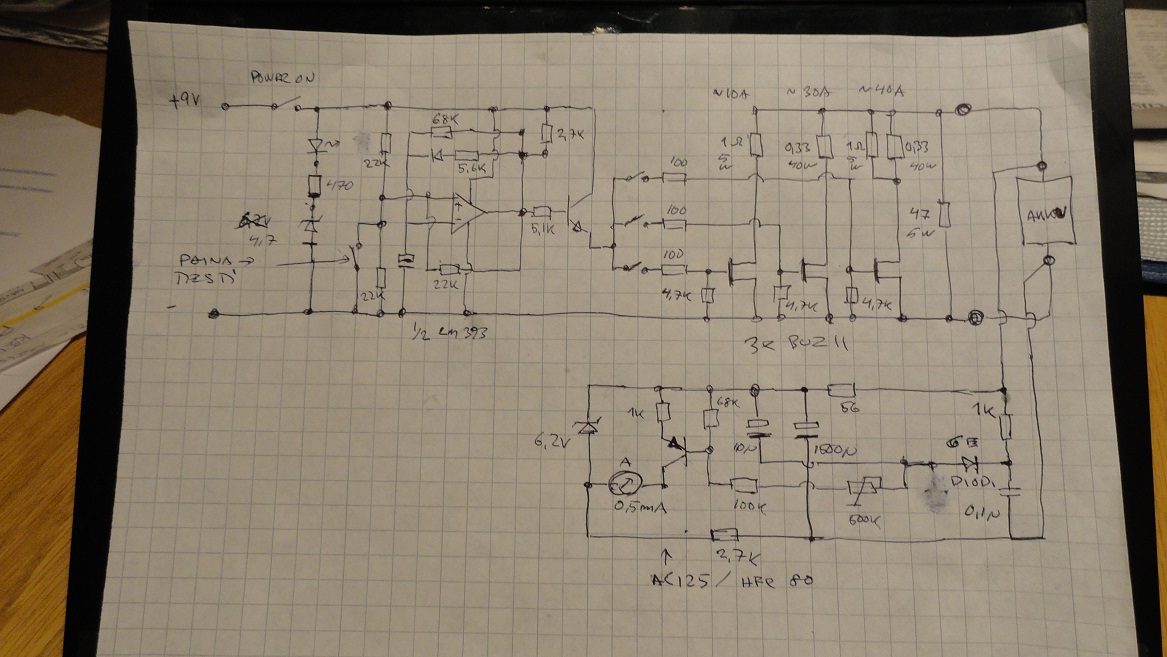 POWER ON
+9V
~10A
~30A
~40A
68K
2,7K
22K
5,6K
1Ω
5W
0,33
40W
1Ω
5W
0,33
40W
470
100
+
-
4,7
5,1K
100
47
5W
AKKU
PAINA →
TESTI
22K
22K
100
4,7K
4,7K
4,7K
-
1/2 LM393
3x BUZ11
56
1K
68K
1K
6,2V
10µ
1500µ
DIODI
A
0,5mA
100K
500K
0,1µ
2,7K
AC125 / HFE 80